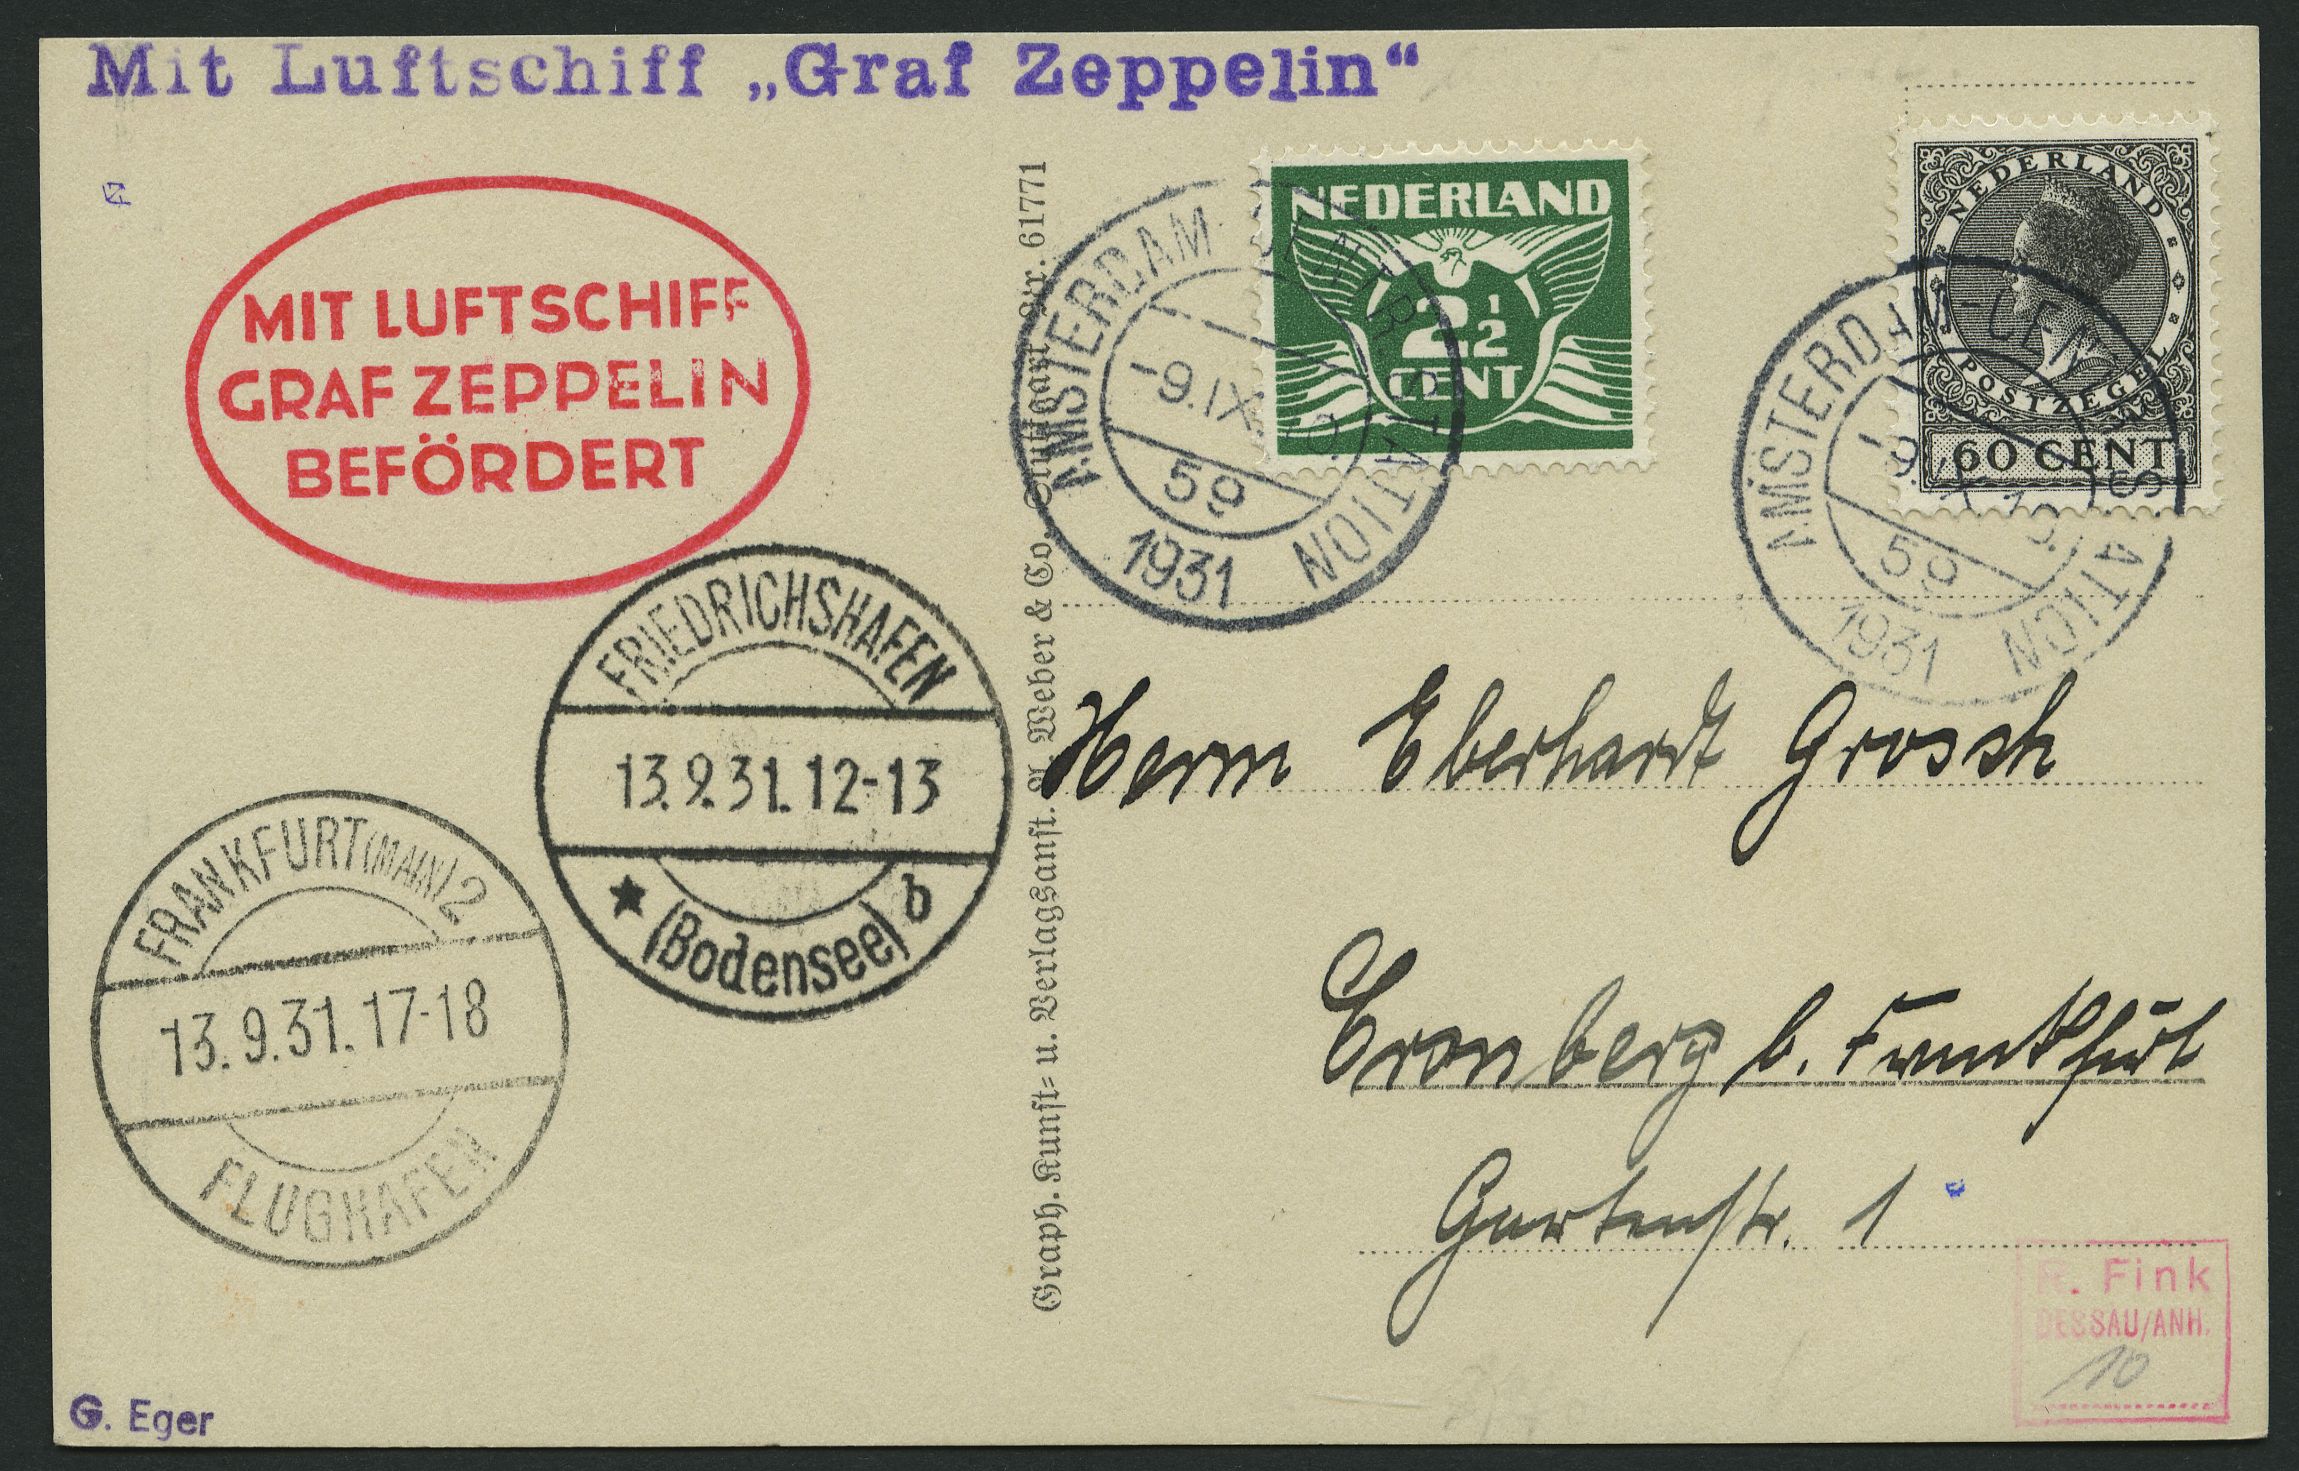 Mit Luftschiff „Graf Zeppelin“
MIT LUFTSCHIFF
GRAF ZEPPELIN
BEFÖRDERT
NEDERLAND
2½
CENT
NEDERLAND
POSTZEGEL
60 CENT
AMSTERDAM CENTR. STATION
-9.IX
59
1931
AMSTERDAM-CENTR. STATION
-9.IX
59
1931
FRIEDRICHSHAFEN
13.9.31.12-13
★ (Bodensee) b
FRANKFURT (MAIN) 2
13.9.31.17-18
FLUGHAFEN
Graph. Kunst- u. Verlagsanst. A. Weber & Co., Stuttgart Nr. 61771
Herrn Eberhardt Grosch
Cronberg b. Frankfurt
Gartenstr. 1
R. Fink
DESSAU/ANH.
10
G. Eger